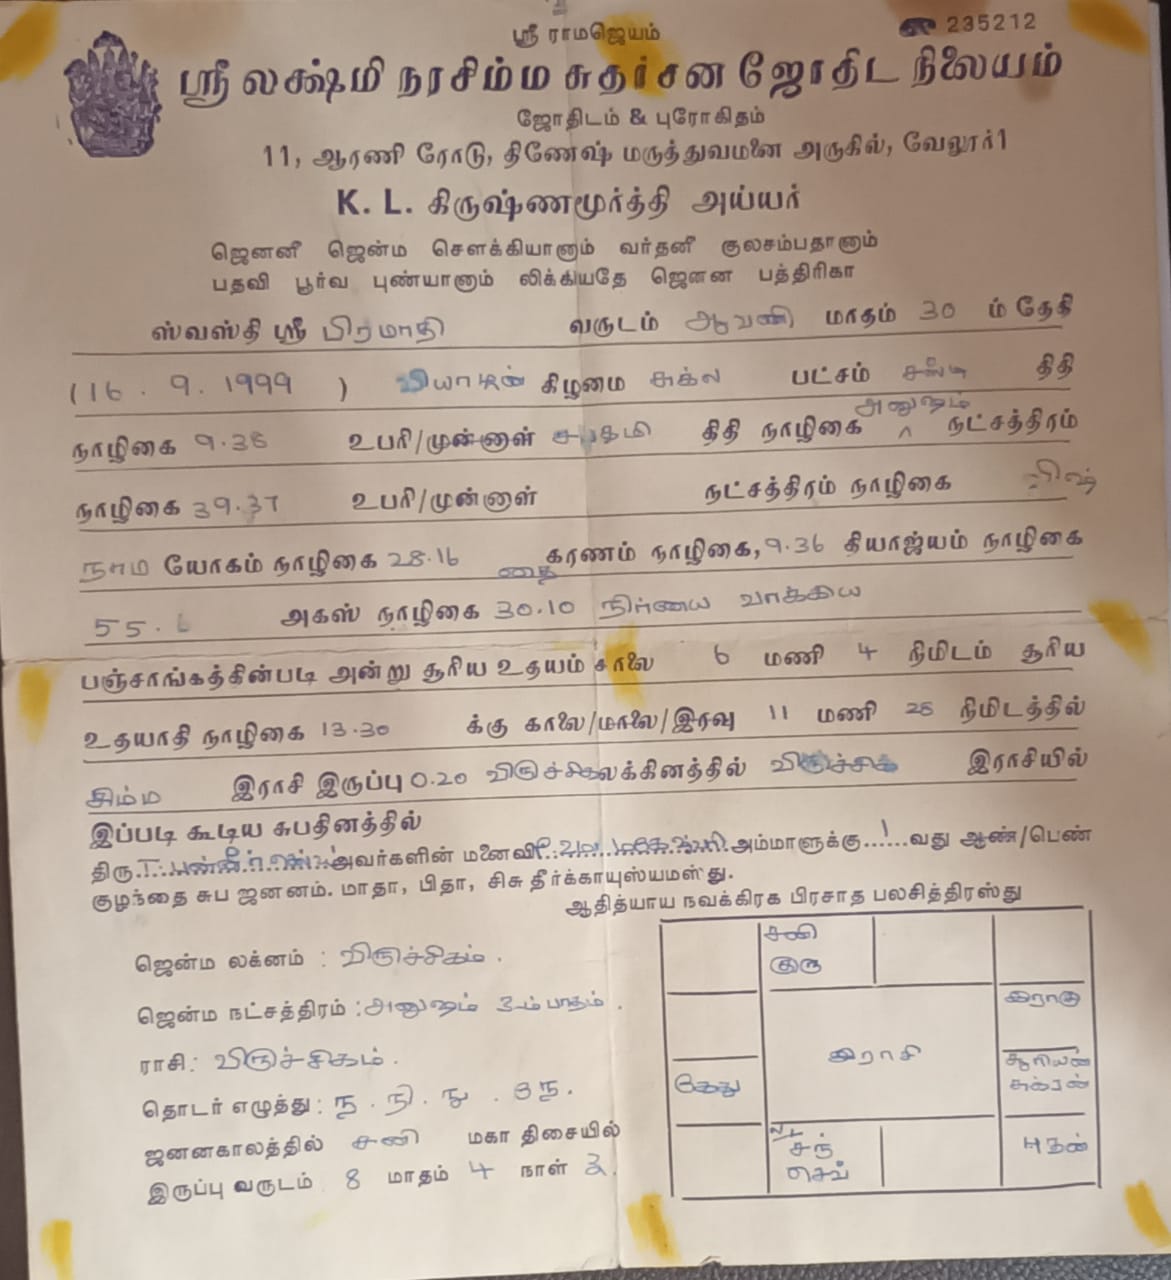 ஸ்ரீ ராமஜெயம்
☎ 235212
ஸ்ரீ லக்ஷ்மி நரசிம்ம சுதர்சன ஜோதிட நிலையம்
ஜோதிடம் & புரோகிதம்
11, ஆரணி ரோடு, தினேஷ் மருத்துவமனை அருகில், வேலூர்1
K. L. கிருஷ்ணமூர்த்தி அய்யர்
ஜெனனீ ஜென்ம சௌக்கியானும் வர்தனீ குலசம்பதானும்
பதவி பூர்வ புண்யானும் லிக்கியதே ஜெனன பத்திரிகா
ஸ்வஸ்தி ஸ்ரீ பிரமாதி வருடம் ஆவணி மாதம் 30 ம் தேதி
(16 . 9 . 1999 ) வியாழன் கிழமை சுக்ல பட்சம் சஷ்டி திதி
நாழிகை 9.36 உபரி/முன்னுள் சப்தமி திதி நாழிகை அனுஷம் நட்சத்திரம்
நாழிகை 39.37 உபரி/முன்னுள் நட்சத்திரம் நாழிகை விஷ்
நாம யோகம் நாழிகை 28.16 தை கரணம் நாழிகை, 9.36 தியாஜ்யம் நாழிகை
55.6 அகஸ் நாழிகை 30.10 நிர்ணய வாக்கிய
பஞ்சாங்கத்தின்படி அன்று சூரிய உதயம் காலை 6 மணி 4 நிமிடம் சூரிய
உதயாதி நாழிகை 13.30 க்கு காலை/மாலை/இரவு 11 மணி 28 நிமிடத்தில்
சிம்ம இராசி இருப்பு 0.20 விருச்சிக லக்கினத்தில் விருச்சிக இராசியில்
இப்படி கூடிய சுபதினத்தில்
திரு. T. அவர்களின் மனைவி அம்மாளுக்கு 1 வது ஆண்/பெண்
குழந்தை சுப ஜனனம். மாதா, பிதா, சிசு தீர்க்காயுஸ்யமஸ்து.
ஆதித்யாய நவக்கிரக பிரசாத பலசித்திரஸ்து
ஜென்ம லக்னம் : விருச்சிகம்.
ஜென்ம நட்சத்திரம் : அனுஷம் 3-ம் பாதம்.
ராசி : விருச்சிகம்.
தொடர் எழுத்து : ந . நி . நு . நே.
ஜனனகாலத்தில் சனி மகா திசையில்
இருப்பு வருடம் 8 மாதம் 4 நாள் 3
சனி
குரு
இராகு
இராசி
கேது
சூரியன்
சுக்ரன்
ல/
சந்
செவ்
புதன்